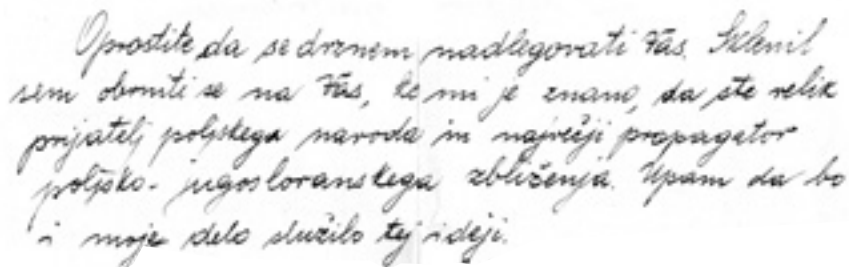 Oprostite, da se drznem nadlegovati Vas. Sklenil
sem obrniti se na Vas, ke mi je znano, da ste velik
prijatelj poljskega naroda in največji propagator
poljsko-jugoslovanskega zbliženja. Upam da bo
i moje delo služilo tej ideji.